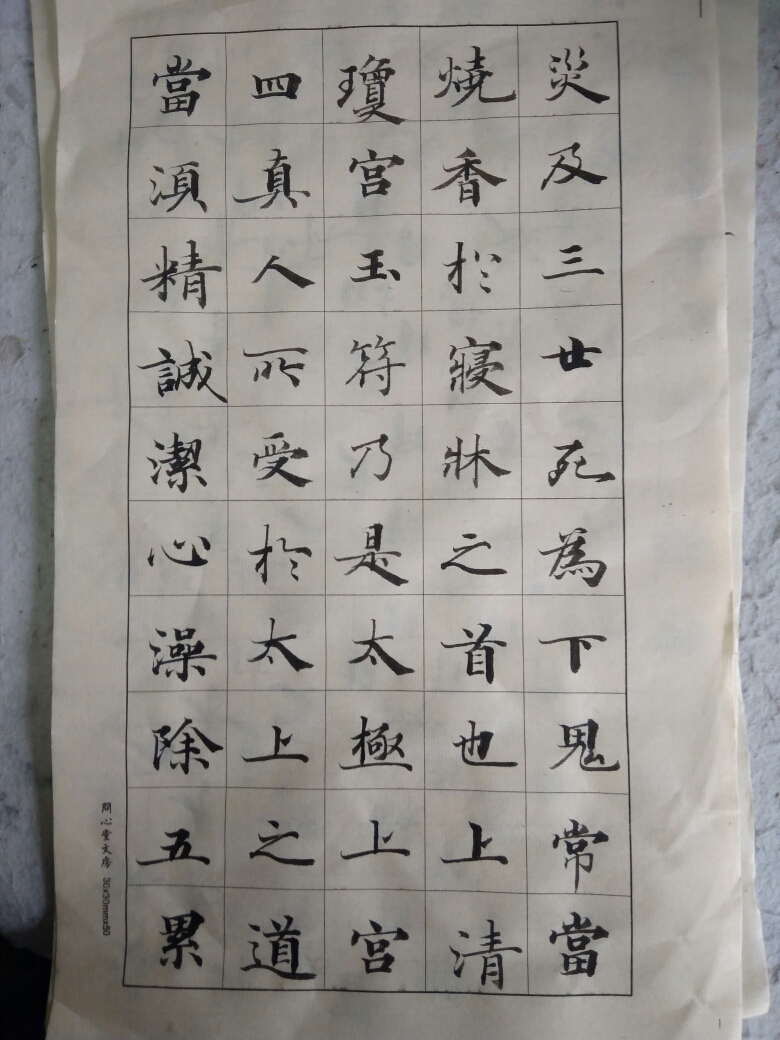 災及三世死為下鬼常當
燒香於寢牀之首也上清
瓊宮玉符乃是太極上宮
四真人所受於太上之道
當須精誠潔心澡除五累
問心堂文房 30x30mmx50